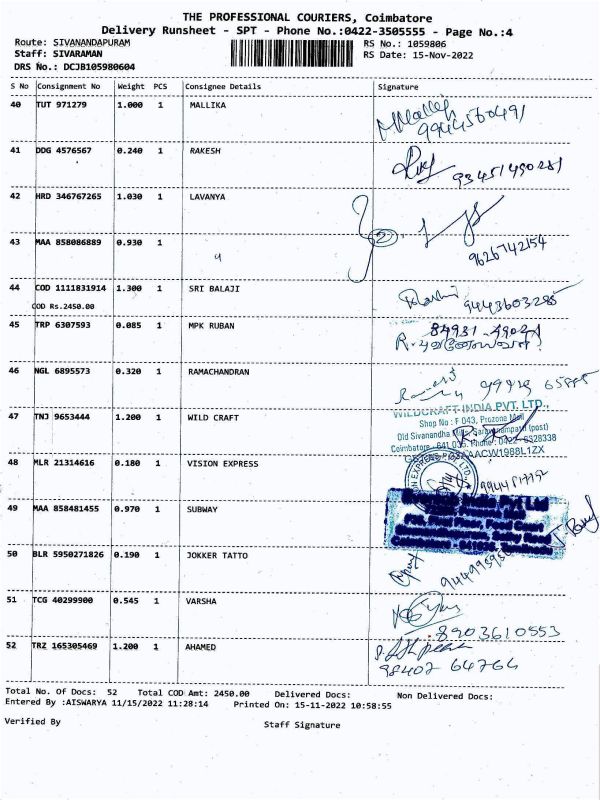 THE PROFESSIONAL COURIERS, Coimbatore
Delivery Runsheet - SPT - Phone No.:0422-3505555 - Page No.:4
Route: SIVANANDAPURAM RS No.: 1059806
Staff: SIVARAMAN RS Date: 15-Nov-2022
DRS No.: DCJB105980604
S No Consignment No Weight PCS Consignee Details Signature
40 TUT 971279 1.000 1 MALLIKA
9944560491
41 DDG 4576567 0.240 1 RAKESH
93451490281
42 HRD 346767265 1.030 1 LAVANYA
43 MAA 858086889 0.930 1
9626742154
44 COD 1111831914 1.300 1 SRI BALAJI
COD Rs.2450.00 9443603285
45 TRP 6307593 0.085 1 MPK RUBAN
46 NGL 6895573 0.320 1 RAMACHANDRAN
47 TNJ 9653444 1.200 1 WILD CRAFT
WILDCRAFT INDIA PVT. LTD.,
Shop No : F 043, Prozone Mall
Old Sivanandha
48 MLR 21314616 0.180 1 VISION EXPRESS
49 MAA 858481455 0.970 1 SUBWAY
50 BLR 5950271826 0.190 1 JOKKER TATTO
51 TCG 40299900 0.545 1 VARSHA
8903610553
52 TRZ 165305469 1.200 1 AHAMED
98407 64764
Total No. Of Docs: 52 Total COD Amt: 2450.00 Delivered Docs: Non Delivered Docs:
Entered By :AISWARYA 11/15/2022 11:28:14 Printed On: 15-11-2022 10:58:55
Verified By Staff Signature